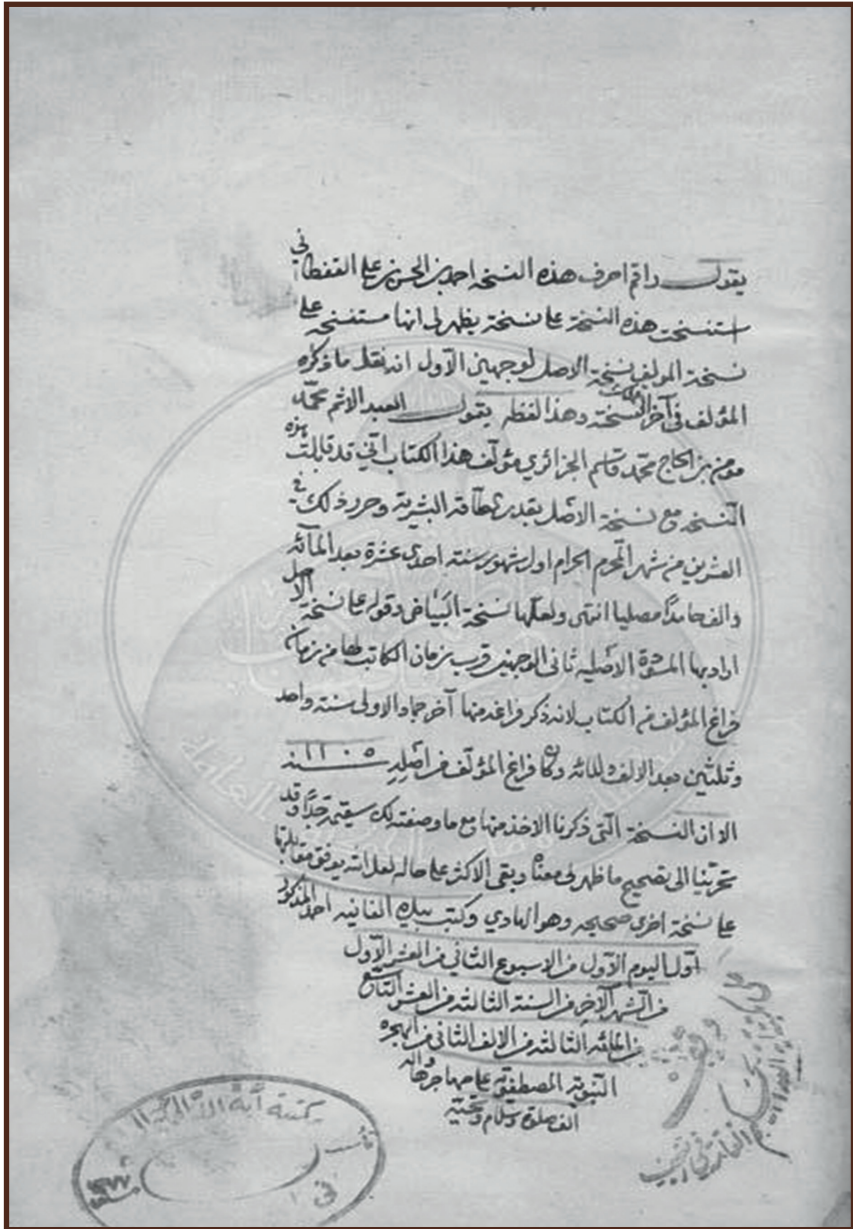 يقول راقم احرف هذه النسخة احمد بن الحسن بن علي القفطاني
استنسخت هذه النسخة على نسخة يظهر لى انها مستنسخه على
نسخة المولف نسخة الاصل لوجهين الاول انه نقل ما ذكره
المؤلف في آخر النسخة وهذا لفظه يقول العبد الاثم محمد
مومن بن الحاج محمد قاسم الجزائري مؤلف هذا الكتاب اني قد قابلت هذه
النسخه مع نسخة الاصل بقدر الطاقة البشرية وحرر ذلك في
العشرين من شهر المحرم الحرام اول شهور سنة احدى عشرة بعد المائه
والف حامدًا مصليا انتهى ولعلها نسخة البياض وقوله على نسخة الاصل
اراد بها المسودة الاصليه ثانى الوجهين قرب زمان الكاتب لها من زمان
فراغ المؤلف من الكتاب لانه ذكر فراغه منها آخر جماد الاولى سنة واحد
وثلثين بعد الالف والمائه وكان فراغ المؤلف من اصله سنة ١١٠٥
الا ان النسخة التى ذكرنا الاخذ منها مع ما وصفته لك سقيمة جدًا وقد
تحرينا الى تصحيح ما ظهر لى معناه وبقى الاكثر على حاله لعل الله يوفق مقابلتها
على نسخة اخرى صحيحه وهو الهادي وكتب بيده الفانيه احمد المذكور
اول اليوم الأول من الاسبوع الثاني من العشر الأول
من الشهر الآخر من السنة الثالثة من العشر التاسع
من المائه الثالثة من الالف الثاني من الهجره
النبوية المصطفوية على مهاجرها واله
الف صلوة وسلام وتحيته
مكتبة آية الله